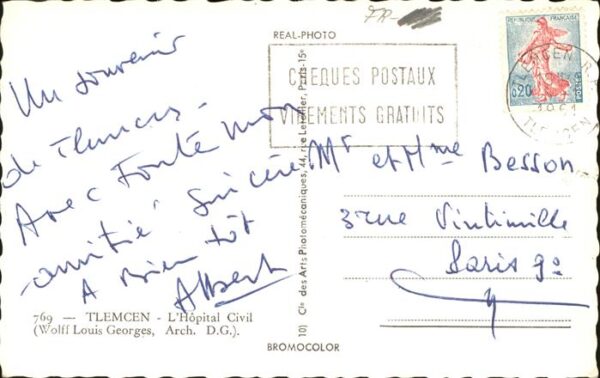 FR-
REAL-PHOTO
CHEQUES POSTAUX
VIREMENTS GRATUITS
REPUBLIQUE FRANÇAISE
0,20
POSTES
TLEMCEN R.P.
1961
TLEMCEN
Un souvenir
de Tlemcen.
Avec toute mon
amitié sincère.
A bientôt
Albert
Mr et Mme Besson
3 rue Vintimille
Paris 9e
10) Cie des Arts Photomécaniques, 44, rue Letellier, Paris-15e
769 — TLEMCEN - L'Hôpital Civil
(Wolff Louis Georges, Arch. D.G.).
BROMOCOLOR